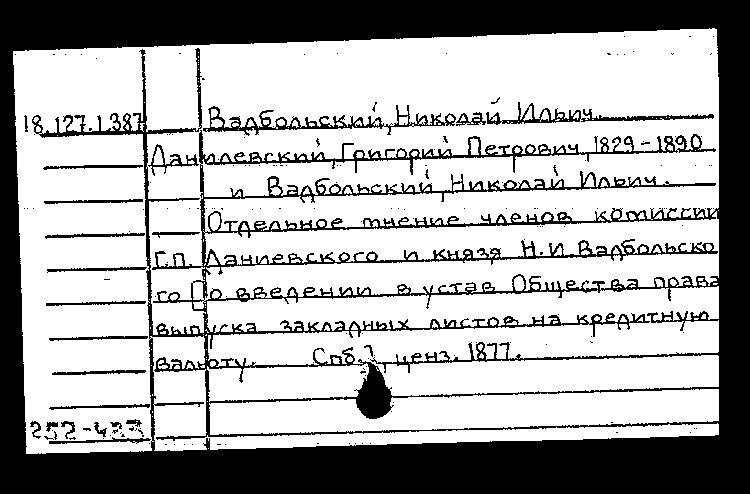 18.127.1.387 Вадбольский, Николай Ильич.
Данилевский, Григорий Петрович, 1829-1890
и Вадбольский, Николай Ильич.
Отдельное мнение членов комиссии
Г.П. Даниевского и князя Н.И. Вадбольско
го [о введении в устав Общества права
выпуска закладных листов на кредитную
валюту. Спб.], ценз. 1877.
252-423